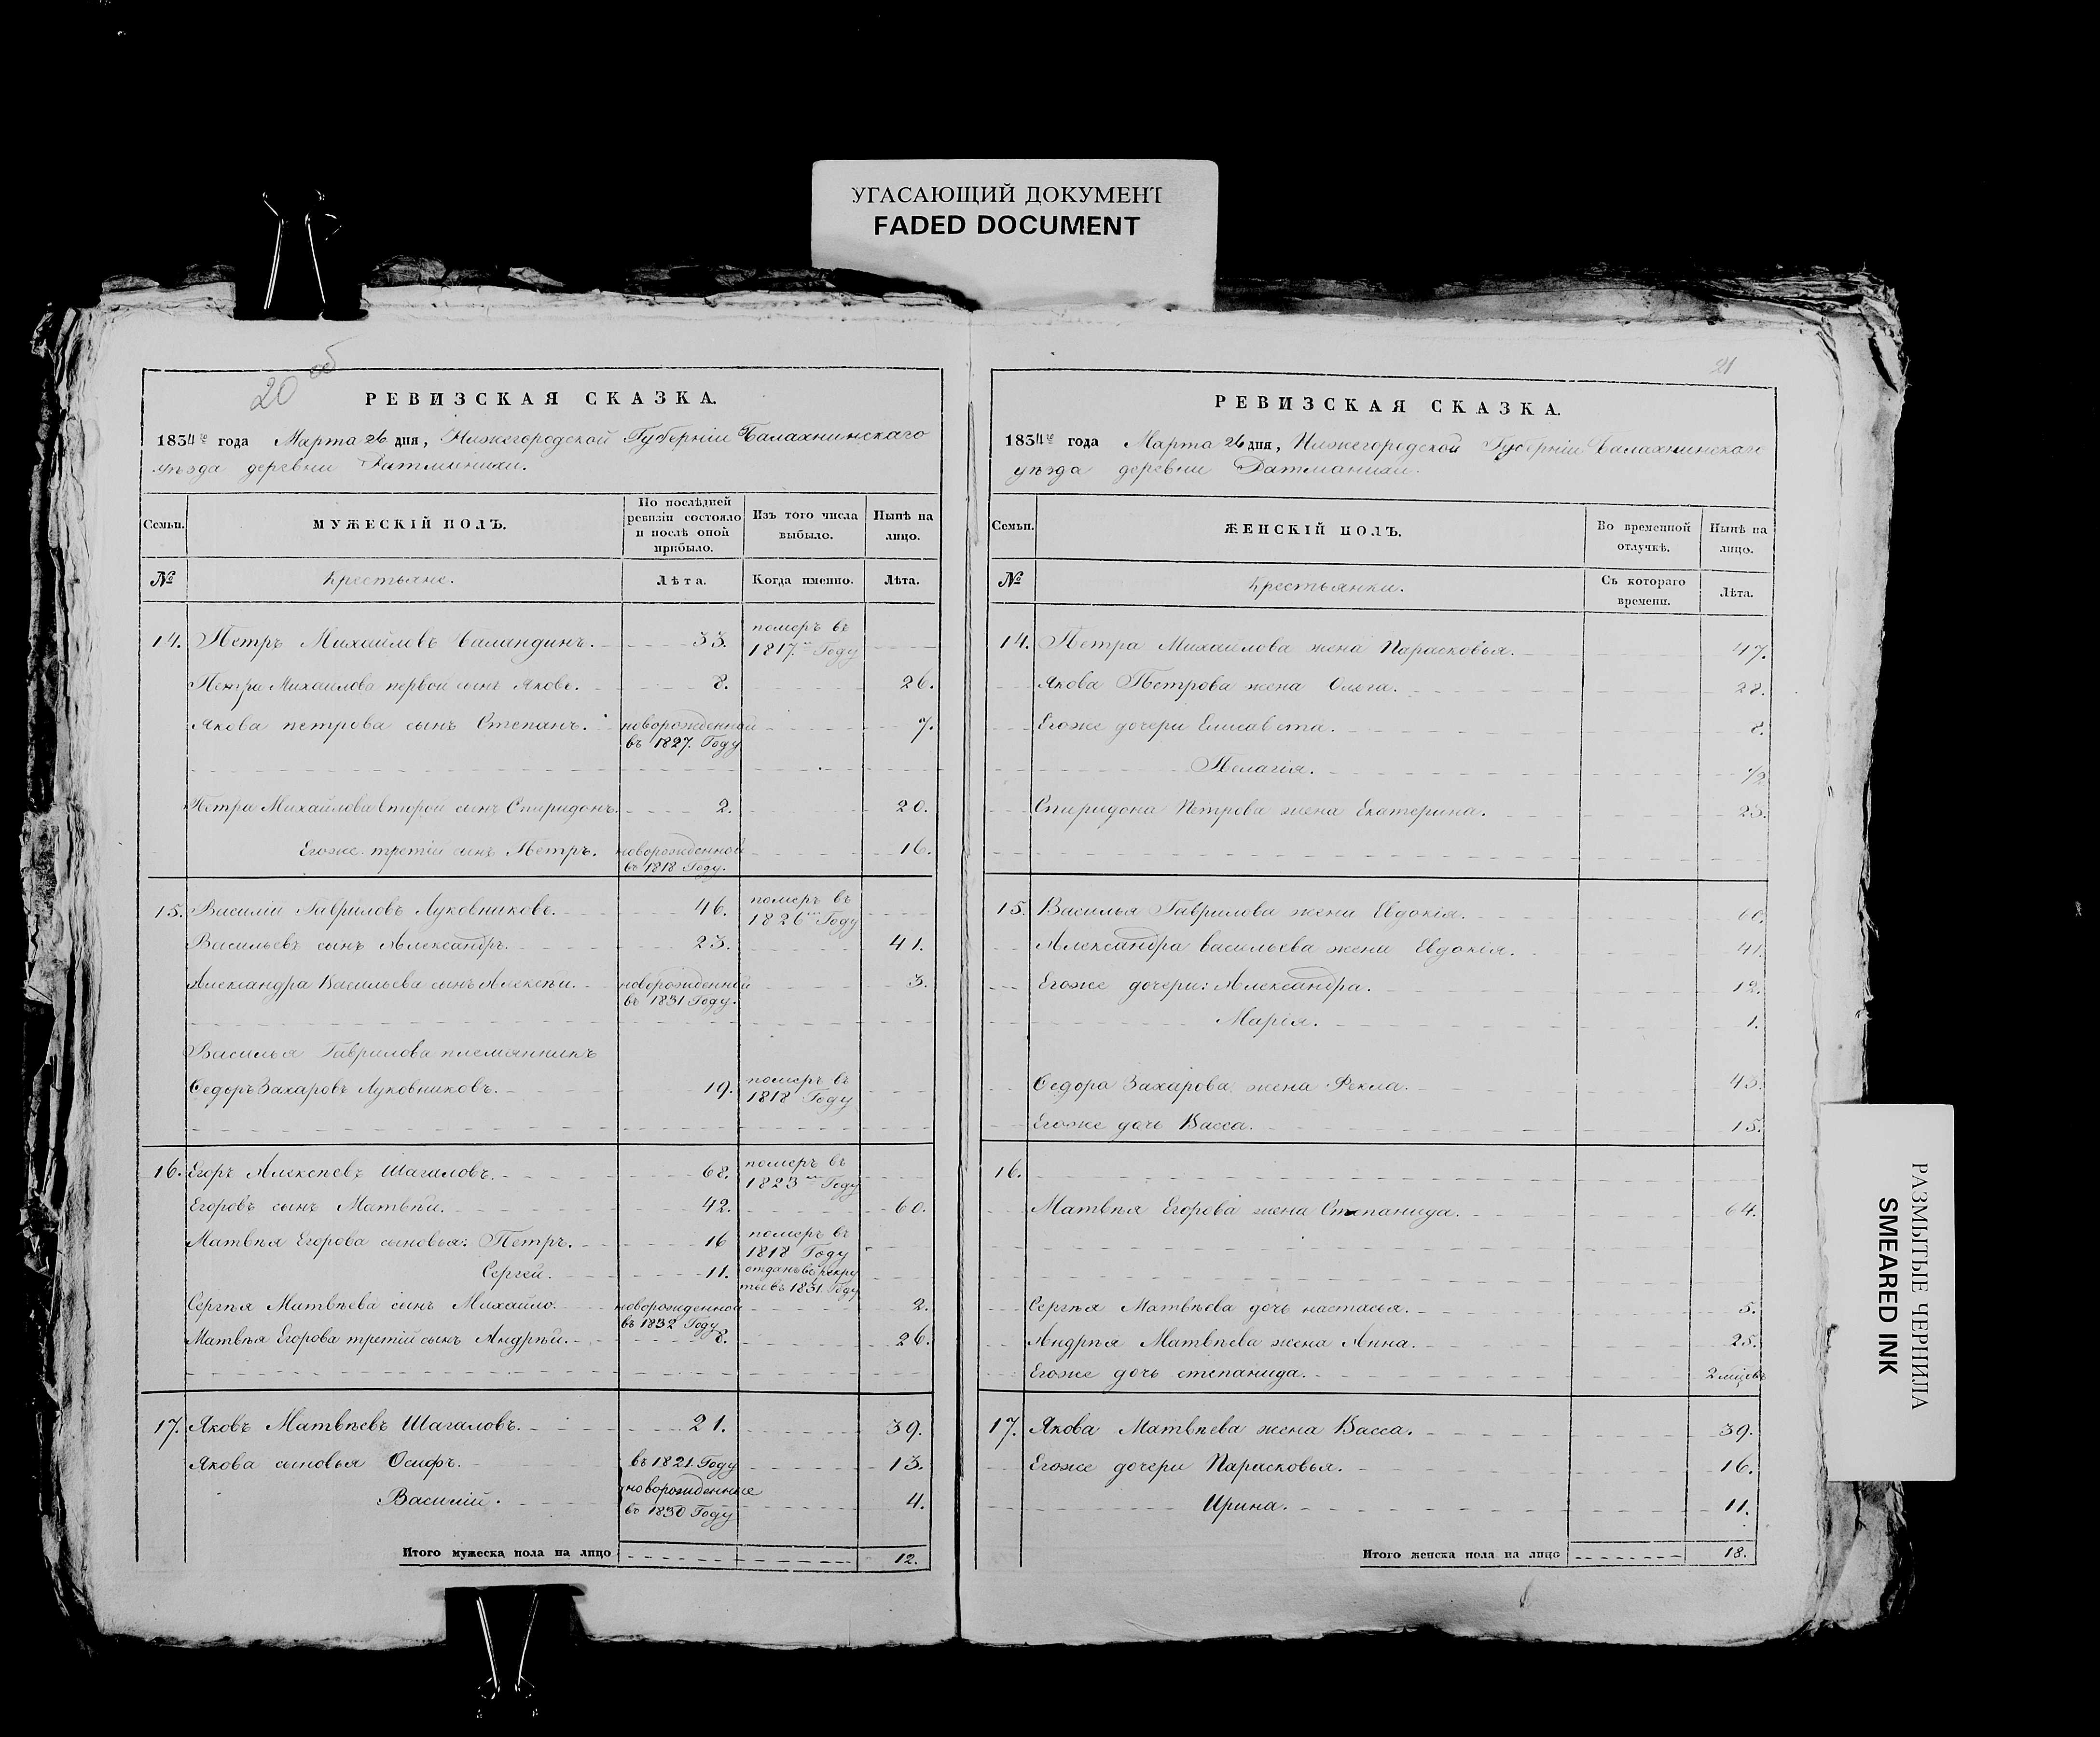 УГАСАЮЩИЙ ДОКУМЕНТ
FADED DOCUMENT
20 об
РЕВИЗСКАЯ СКАЗКА.
1834го года Марта 26 дня, Нижегородской Губерніи Балахнинскаго
уѣзда деревни
Семьи. МУЖЕСКІЙ ПОЛЪ. По послѣдней ревизіи состояло и послѣ оной прибыло. Изъ того числа выбыло. Нынѣ на лицо.
№ Крестьяне. Лѣта. Когда именно. Лѣта.
14. Петръ Михайловъ Баландинъ. 33. померъ въ 1817м Году
Петра Михайлова первой сынъ Яковъ. 8. 26.
Якова петрова сынъ Степанъ. новорожденной въ 1827. Году 7.
Петра Михайлова второй сынъ Спиридонъ. 2. 20.
Егоже третій сынъ Петръ. новорожденной въ 1818 Году. 16.
15. Василій Гавриловъ Луковниковъ. 46. померъ въ 1826м Году
Васильевъ сынъ Александръ. 23. 41.
Александра Васильева сынъ Алексѣй. новорожденной въ 1831 Году. 3.
Василья Гаврилова племянникъ
Ѳедоръ Захаровъ Луковниковъ. 19. померъ въ 1818 Году
16. Егоръ Алексѣевъ Шагаловъ. 68. померъ въ 1823м Году
Егоровъ сынъ Матвѣй. 42. 60.
Матвѣя Егорова сыновья: Петръ. 16 померъ въ 1818 Году
Сергей. 11. отданъ въ рекруты въ 1831 Году
Сергѣя Матвѣева сынъ Михайло. новорожденной въ 1832 Году 2.
Матвѣя Егорова третій сынъ Андрѣй. 8. 26.
17. Яковъ Матвѣевъ Шагаловъ. 21. 39.
Якова сыновья Осифъ. въ 1821 Году 13.
новорожденные
Василій. въ 1830 Году 4.
Итого мужеска пола на лицо 12.
21
РЕВИЗСКАЯ СКАЗКА.
1834го года Марта 26 дня, Нижегородской Губерніи Балахнинскаго
уѣзда деревни
Семьи. ЖЕНСКІЙ ПОЛЪ. Во временной отлучкѣ. Нынѣ на лицо.
№ Крестьянки. Съ котораго времени. Лѣта.
14. Петра Михайлова жена Парасковья. 47.
Якова Петрова жена Ольга. 28.
Егоже дочери Елисавета. 8.
Пелагія. 1/2
Спиридона Петрова жена Екатерина. 23.
15. Василья Гаврилова жена Евдокія. 60.
Александра васильева жена Евдокія. 41.
Егоже дочери: Александра. 12.
Марія. 1.
Ѳедора Захарова жена Ѳекла. 43.
Егоже дочь Васса. 15.
16.
Матвѣя Егорова жена Степанида. 64.
Сергѣя Матвѣева дочь настасья. 5.
Андрѣя Матвѣева жена Анна. 25.
Егоже дочь степанида. 2
17. Якова Матвѣева жена Васса. 39.
Егоже дочери Парасковья. 16.
Ирина. 11.
Итого женска пола на лицо 18.
РАЗМЫТЫЕ ЧЕРНИЛА
SMEARED INK